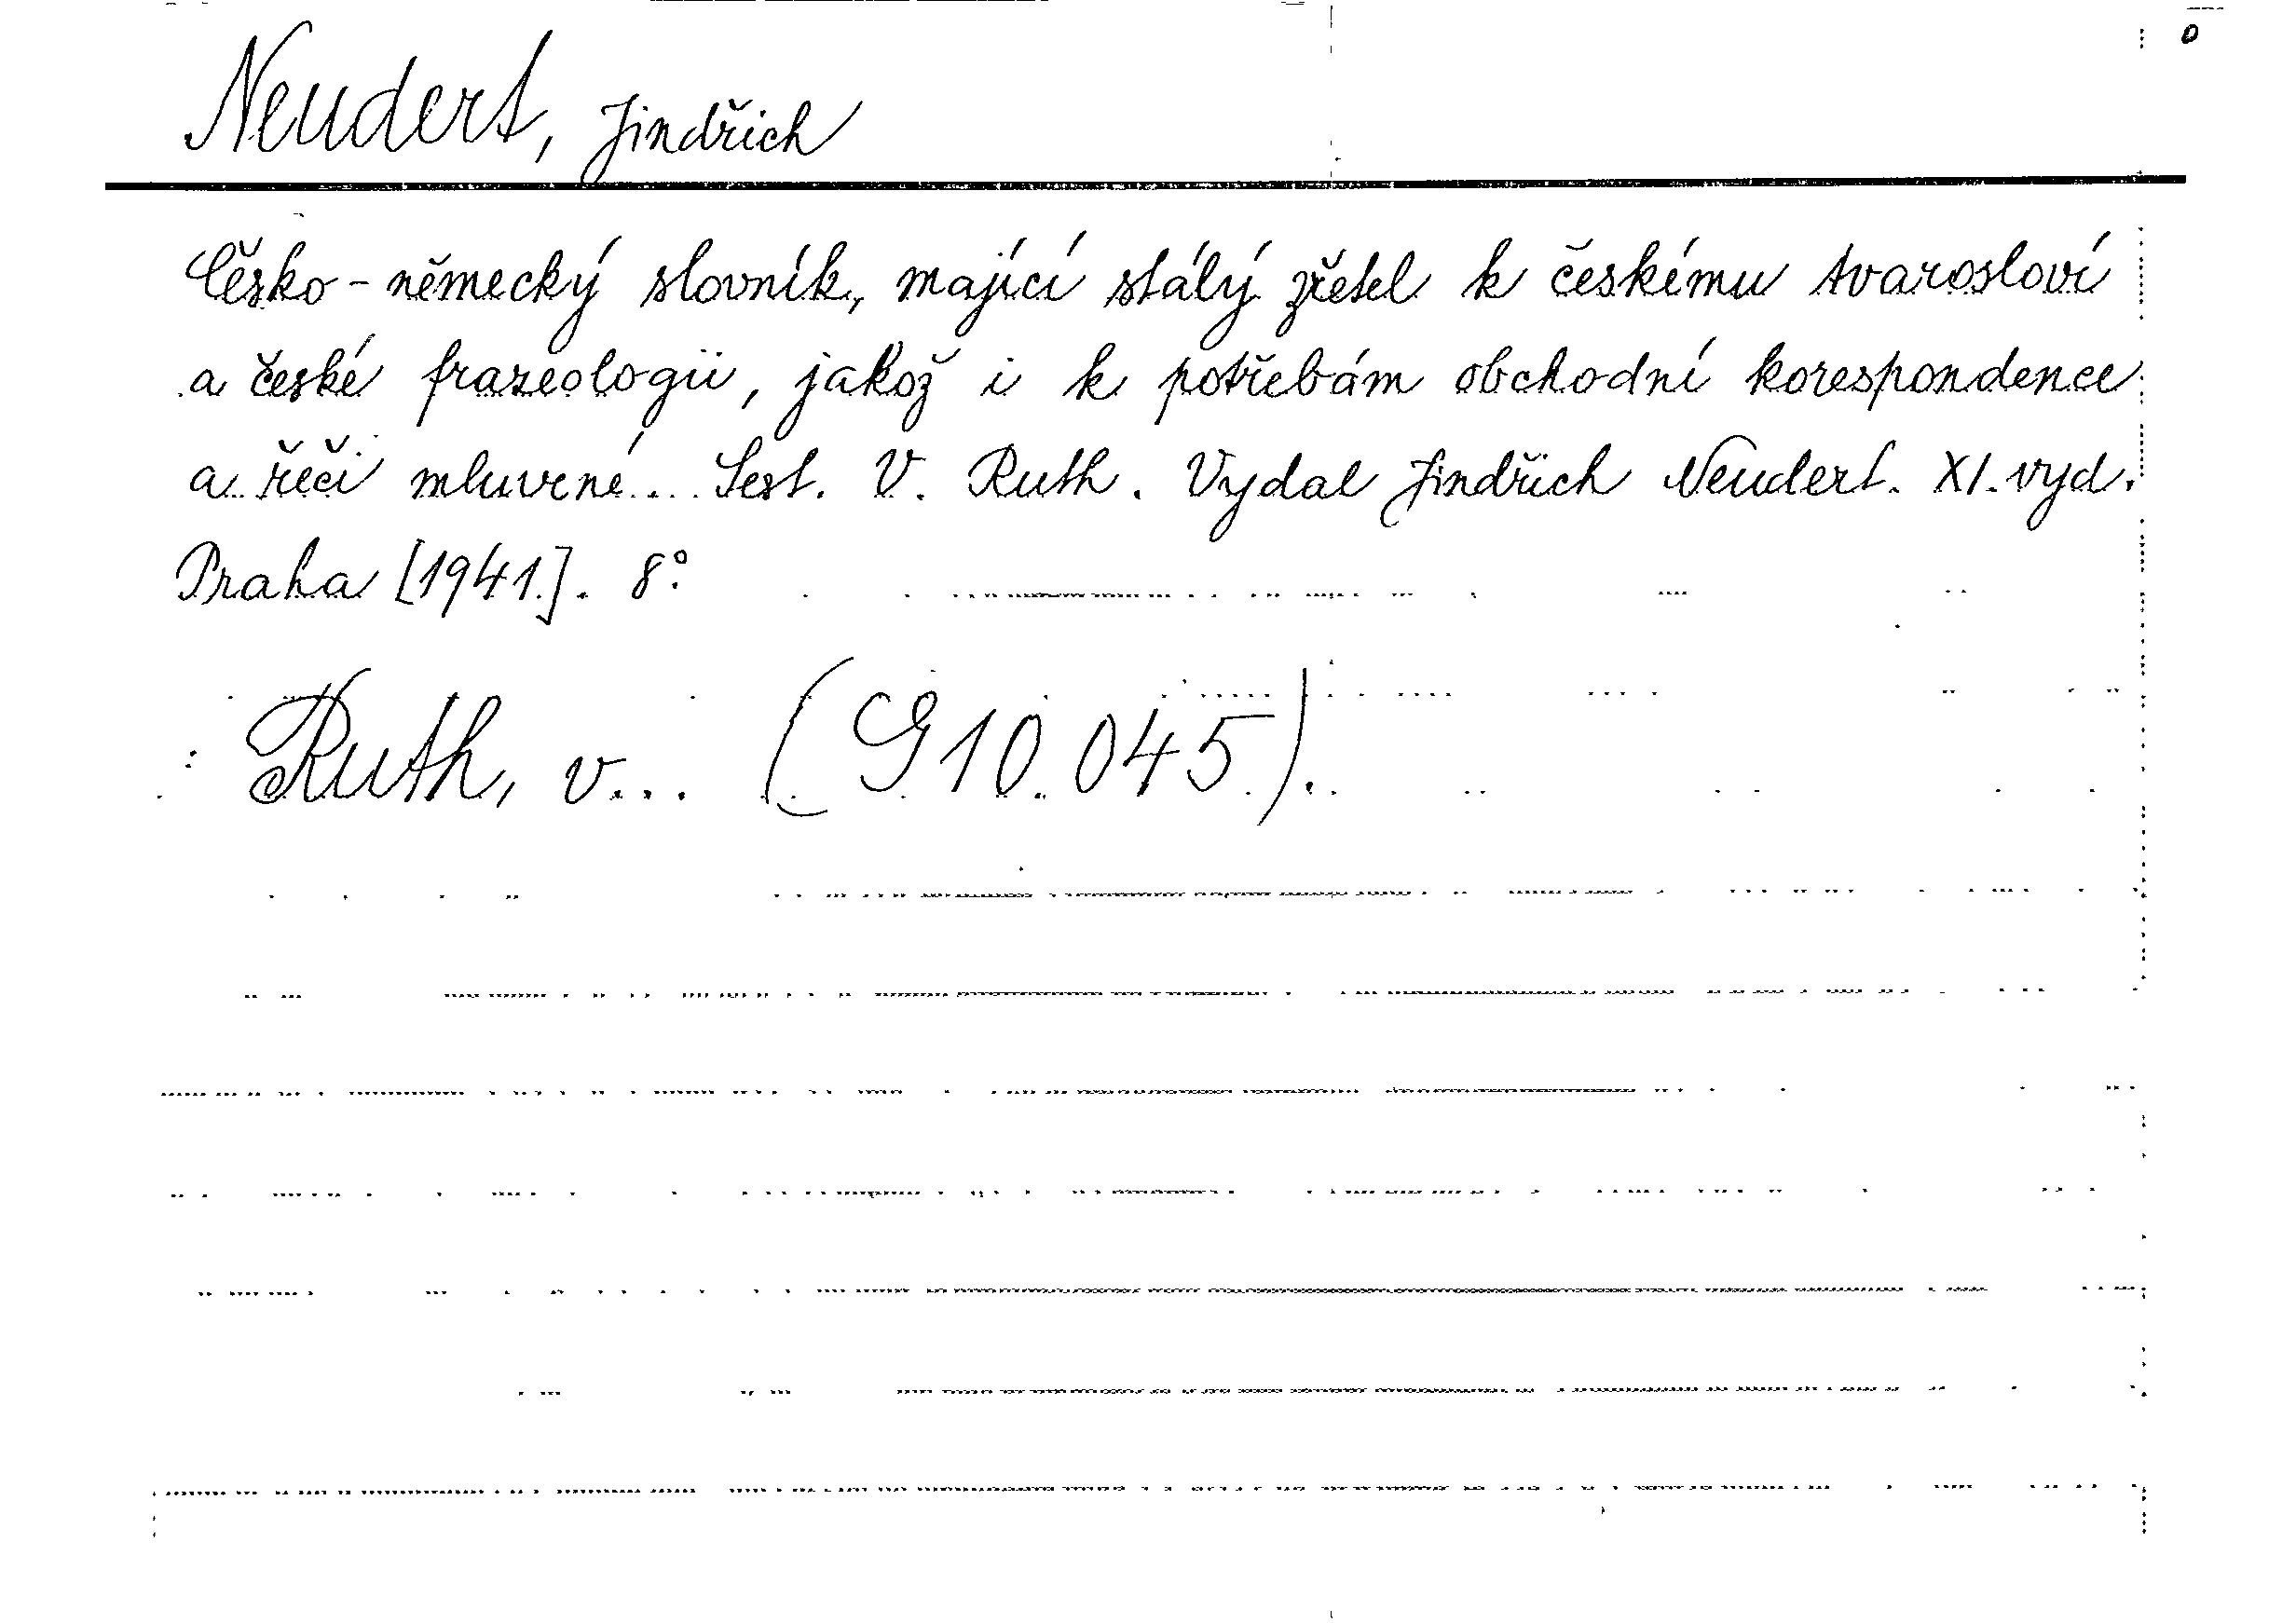 Neudert, Jindřich
Česko-německý slovník, mající stálý zřetel k českému tvarosloví
a české frazeologii, jakož i k potřebám obchodní korespondence
a řeči mluvené... Sest. V. Ruth. Vydal Jindřich Neudert. XI. vyd.
Praha [1941]. 8°.
Ruth, v... (G 10.045).